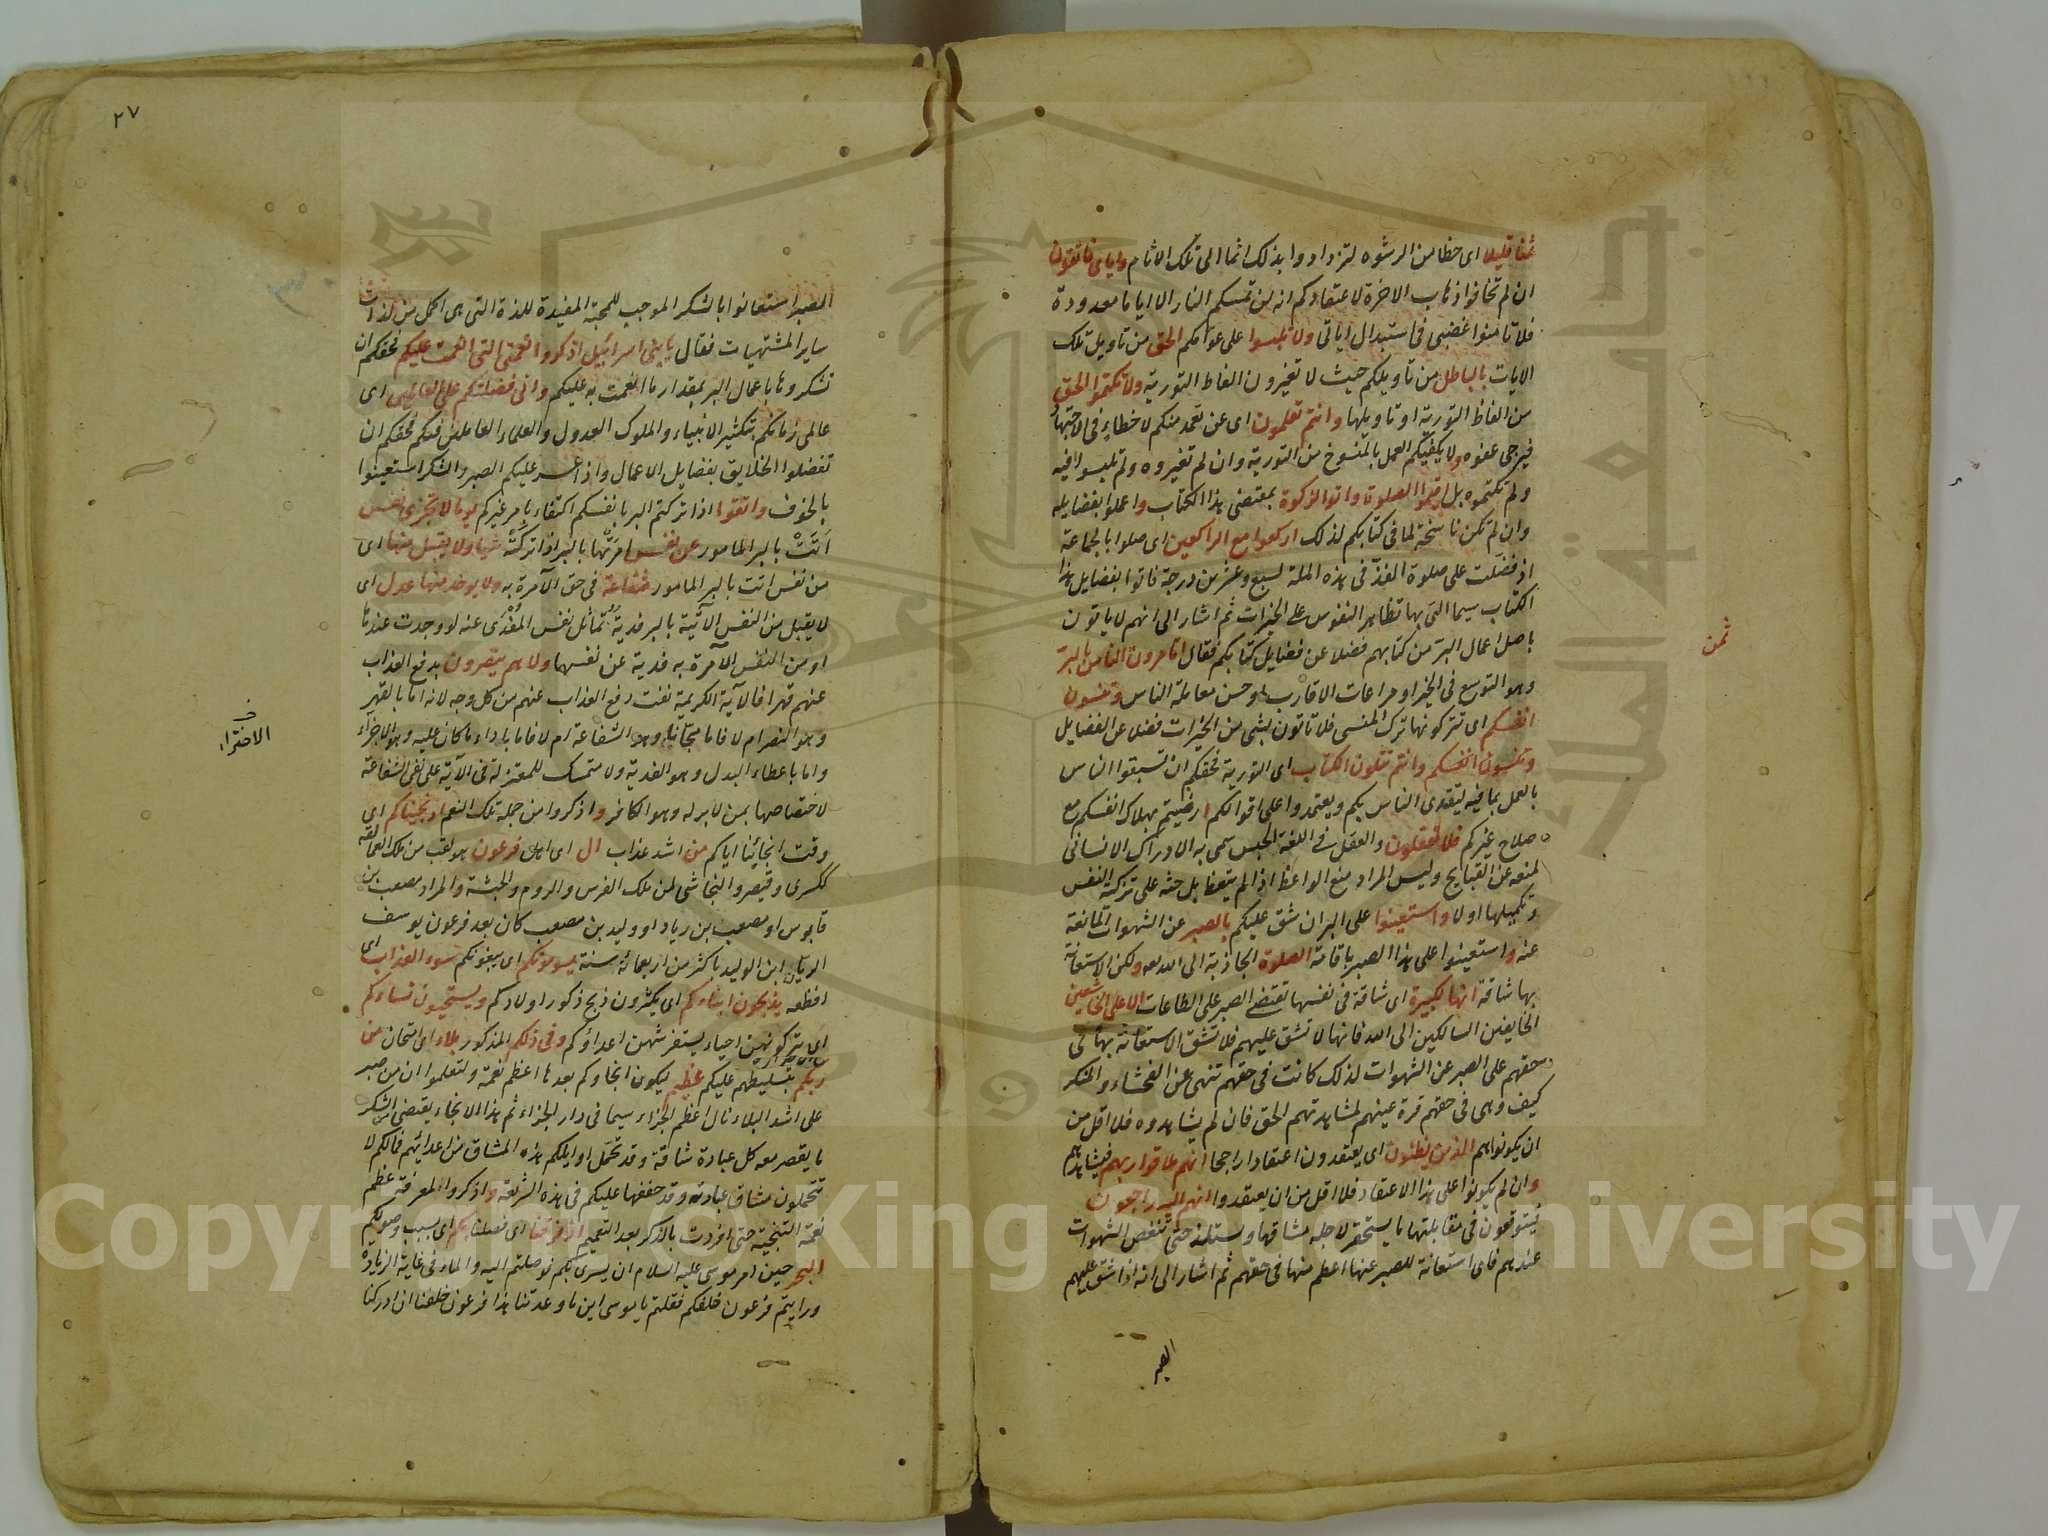 ثمنا قليلا اى حظا من الرشوه لتزدادوا بذلك اثما الى تلك الاثام واياى فاتقون
ان لم تخافوا ذهاب الاخرة لاعتقادكم انه لن تمسكم النار الا اياما معدودة
فلا تامنوا غضبى فى استبدال اياتى ولا تلبسوا على عوامكم الحق من تاويل تلك
الايات بالباطل من تاويلكم حيث لا تغيرون الفاظ التورية ولا تكتموا الحق
من الفاظ التورية او تاويلها وانتم تعلمون اى عن تعمد منكم لا خطاء فى الاجتهاد
فيرجى عفوه ولا يكفيكم العمل بالمنسوخ من التورية وان لم تغيروه ولم تلبسوا فيه
ولم تكتموه بل اقيموا الصلوة واتوا الزكوة بمقتضى هذا الكتاب واعملوا بفضايله
وان لم تكن ناسخة لما فى كتابكم لذلك اركعوا مع الراكعين اى صلوا بالجماعة
اذ فضلت على صلوة الفذ فى هذه الملة بسبع وعشرين درجة فاتوا بفضايل هذا
الكتاب سيما التى بها تظاهر النفوس على الخيرات ثم اشار الى انهم لا ياتون
باصل اعمال البر من كتابهم فضلا عن فضايل كتابكم فقال اتامرون الناس بالبر
وهو التوسع فى الخير او مراعات الاقارب وحسن معاملة الناس وتنسون
انفسكم اى تتركونها ترك المنسى فلا تاتون بشى من الخيرات فضلا عن الفضايل
وتنسون انفسكم وانتم تتلون الكتاب اى التورية فحقكم ان تسبقوا الناس
بالعمل بما فيه ليقتدى الناس بكم ويعتمدوا على اقوالكم ارضيتم بهلاك انفسكم مع
صلاح غيركم فلا تعقلون والعقل فى اللغة الحبس سمى به الادراك الانسانى
لمنعه عن القبايح وليس المراد منع الواعظ اذا لم يتعظ بل حثه على تزكية النفس
وتكميلها اولا واستعينوا على البر ان شق عليكم بالصبر عن الشهوات المانعة
عنه واستعينوا على هذا الصبر باقامة الصلوة الجاذبة الى الله ولكن الاستعانة
بها شاقة انها لكبيرة اى شاقة فى نفسها تقتضى الصبر على الطاعات الا على الخاشعين
الخايفين السالكين الى الله فانها لا تشق عليهم فلا تشق الاستعانة بها فى
حقهم على الصبر عن الشهوات لذلك كانت فى حقهم تنهى عن الفحشاء والمنكر
كيف وهى فى حقهم قرة عينهم لمشاهدتهم الحق فان لم يشاهدوه فلا اقل من
ان يكونوا هم الذين يظنون اى يعتقدون اعتقادا راجحا انهم ملاقوا ربهم
وان لم يكونوا على هذا الاعتقاد فلا اقل من ان يعتقدوا انهم اليه راجعون
فيتوقعون فى مقابلتها ما يستحقر لاجله مشاقها ويستلذ حتى تنغص الشهوات
عندهم فاى استعانة للصبر عنها اعظم منها فى حقهم ثم اشار الى انه اذا شق عليهم
الصبر
ثمن
٢٧
الصبر استعانوا بالشكر الموجب للمحبة المفيدة للذة التى هى اكمل من لذات
ساير المشتهيات فقال يا بنى اسرائيل اذكروا نعمتى التى انعمت عليكم فحقكم ان
تشكروها باعمال البر بمقدار ما انعمت به عليكم وانى فضلتكم على العالمين اى
عالمى زمانكم بتكثير الانبياء والملوك العدول والعلماء العاملين فيكم فحقكم ان
تفضلوا الخلايق بفضايل الاعمال واذا عسر عليكم الصبر والشكر استعينوا
بالخوف واتقوا اذا تركتم البر بانفسكم اكتفاء بامر غيركم يوما لا تجزى نفس
اتت بالبر المامور عن نفس امرتها بالبر اذا تركته شيا ولا يقبل منها اى
من نفس اتت بالبر المامور شفاعة فى حق الآمرة به ولا يوخذ منها عدل اى
لا يقبل من النفس الآتية بالبر فدية تماثل نفس المفدى عنه لو وجدت عندها
او من النفس الآمرة به فدية عن نفسها ولا هم ينصرون بدفع العذاب
عنهم قهرا فالآية الكريمة نفت دفع العذاب عنهم من كل وجه لانه اما بالقهر
وهو النصر ام لا فاما مجانا وهو الشفاعة ام لا فاما باداء ما كان عليه وهو الاجزاء
واما باعطاء البدل وهو الفدية ولا متمسك للمعتزلة فى الآية على نفى الشفاعة
لاختصاصها بمن لا بر له وهو الكافر واذكروا من جملة تلك النعم اذ نجيناكم اى
وقت انجائنا اياكم من اشد عذاب ال اى اهل فرعون هو لقب من ملك العمالقة
ككسرى وقيصر والنجاشى لمن ملك الفرس والروم والحبشة والمراد مصعب بن
قابوس او مصعب بن رياد او وليد بن مصعب كان بعد فرعون يوسف
الريان ابن الوليد باكثر من اربعمائة سنة يسومونكم اى يبغونكم سوء العذاب اى
افظعه يذبحون ابناءكم اى يكثرون ذبح ذكور اولادكم ويستحيون نساءكم
اى يتركونهن احياء يستفرشهن اعداؤكم وفى ذلكم المذكور بلاء اى امتحان من
ربكم بتسليطهم عليكم عظيم ليكون انجاوكم بعدها اعظم نعمة ولتعلموا ان من صبر
على اشد البلاء نال اعظم الجزاء سيما فى دار الجزاء ثم هذا الانجاء يقتضى الشكر
ما يقصر معه كل عبادة شاقة وقد تحمل اوايلكم هذه المشاق من اعدائهم فمالكم لا
تتحملون مشاق عبادته وقد خففها عليكم فى هذه الشريعة واذكروا لمعرفة عظم
نعمة التنجية حتى افردت بالذكر بعد التعميم اذ فرقنا اى فصلنا بكم اى بسبب وصولكم
البحر حين امر موسى عليه السلام ان يسرى بكم فوصلتم اليه والماء فى غاية الزيادة
ورايتم فرعون خلفكم فقلتم يا موسى اين ما وعدتنا هذا فرعون خلفنا ان ادركنا
الاجزاء
Copyright © King Saud University
جامعة الملك سعود